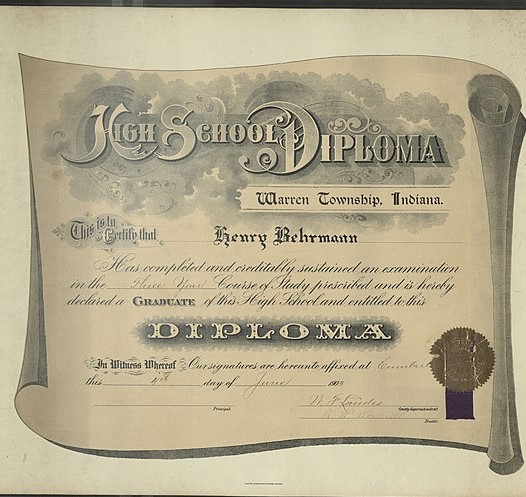 High School Diploma
Warren Township, Indiana.
This is to Certify that Henry Behrmann
Has completed and creditably sustained an examination
in the Three Year Course of Study prescribed and is hereby
declared a GRADUATE of this High School and entitled to this
DIPLOMA
In Witness Whereof Our signatures are hereunto affixed at
this day of June
Principal. County Superintendent
Trustee.